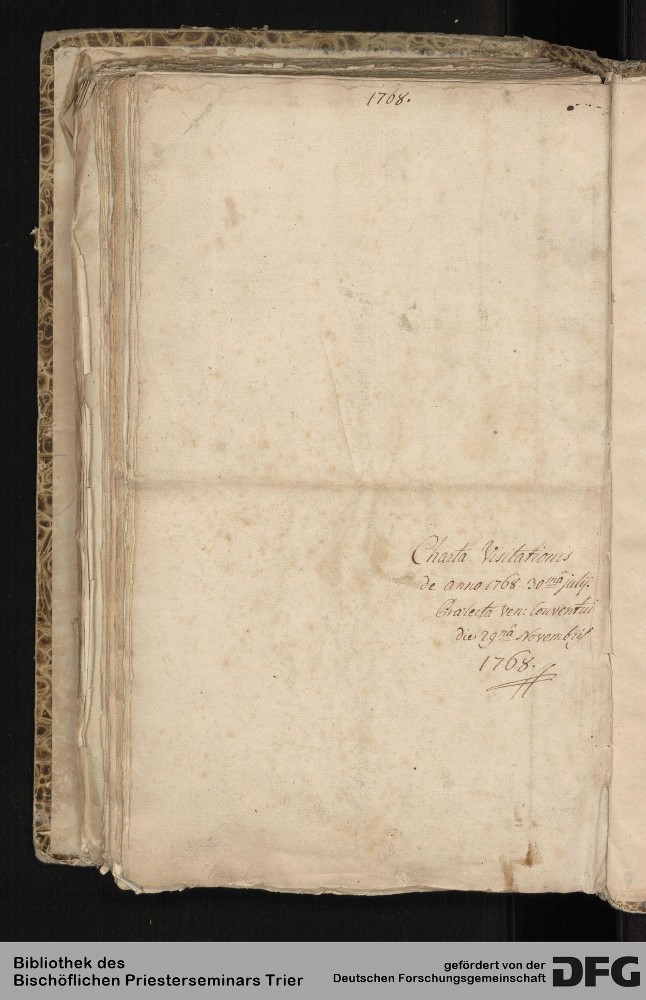 1768.
Charta Visitationis
de anno 1768 30mâ julij.
Praelecta ven: Conventui
die 29nâ Novembris
1768.
Bibliothek des
Bischöflichen Priesterseminars Trier
gefördert von der
Deutschen Forschungsgemeinschaft
DFG